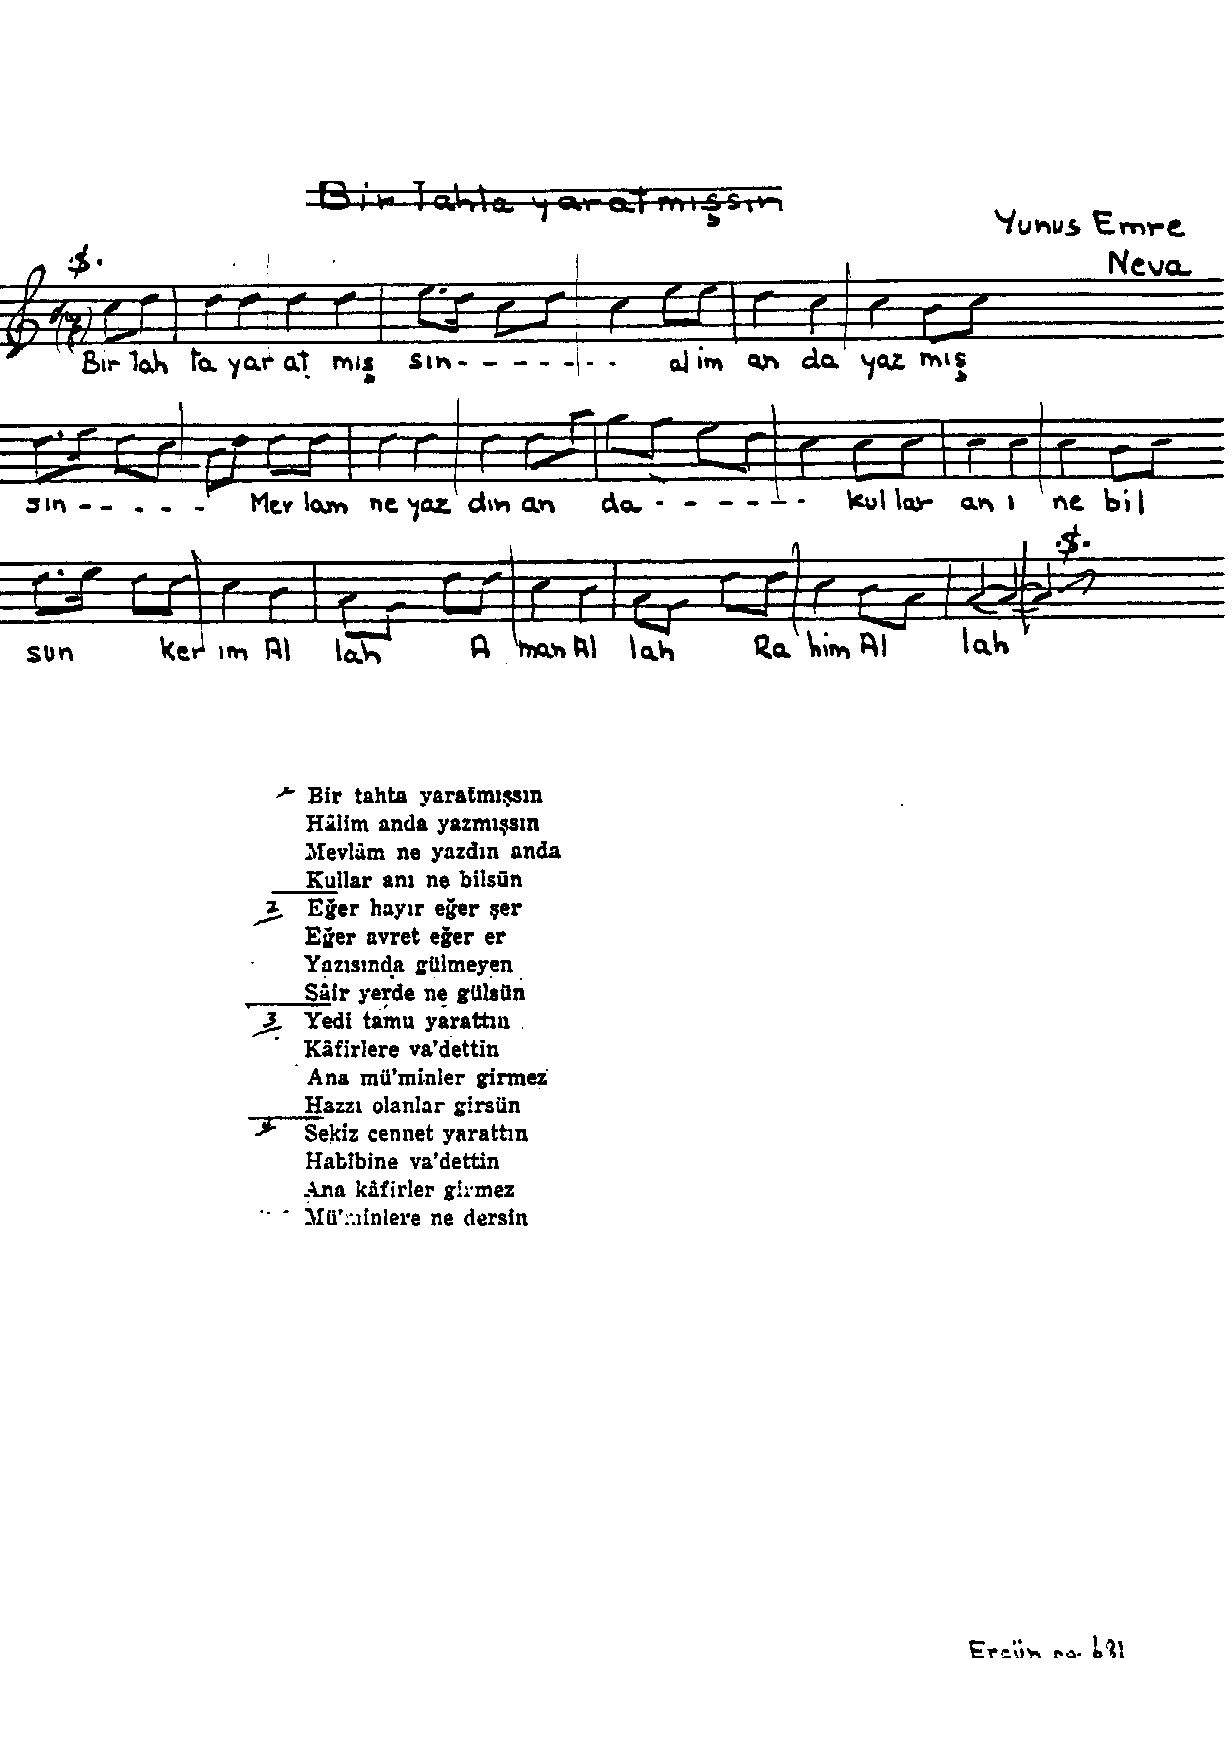 Bir tahta yaratmışsın
Yunus Emre
Neva
Bir tah ta yar at mış sın - - - - - - - alim an da yaz mış
sın - - - - - Mev lam ne yaz dın an da - - - - - - kul lar an ı ne bil
sun Ker im Al lah A man Al lah Ra him Al lah
Bir tahta yaratmışsın
Hâlim anda yazmışsın
Mevlâm ne yazdın anda
Kullar anı ne bilsün
2 Eğer hayır eğer şer
Eğer avret eğer er
Yazısında gülmeyen
Sâir yerde ne gülsün
3 Yedi tamu yarattın
Kâfirlere va'dettin
Ana mü'minler girmez
Hazzı olanlar girsün
4 Sekiz cennet yarattın
Habîbine va'dettin
Ana kâfirler girmez
Mü'minlere ne dersin
Ergün no. 631